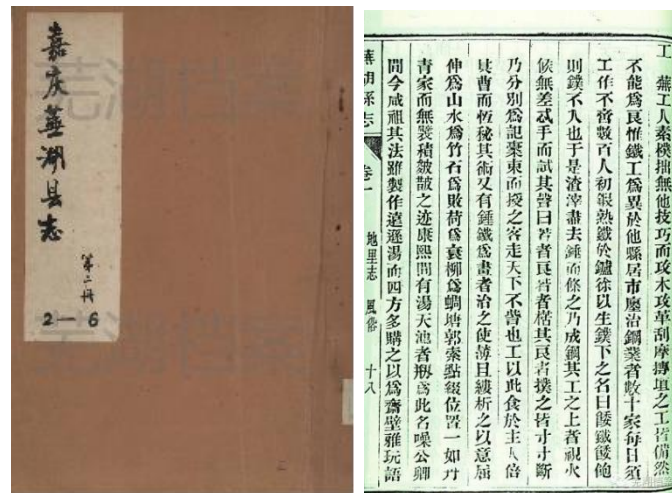 嘉庆蕪湖县志
第二册
2—6
工 蕪工人素樸拙無他技巧而攻木攻革刮摩摶埴之工皆備然
不能爲良惟鐵工爲異於他縣居市廛冶鋼業者數十家每日須
工作不啻數百人初煅熟鐵於鑪徐以生鏷下之名曰餧鐵餧飽
則鏷不入也于是渣滓盡去錘而條之乃成鋼其工之上者視火
候無差忒手而試其聲曰若者良若者楛其良者撲之皆寸寸斷
乃分別爲記橐束而授之客走天下不訾也工以此食於主人倍
其曹而恆秘其術又有錘鐵爲畫者冶之使薄且縷析之以意屈
伸爲山水爲竹石爲敗荷爲衰柳爲蜩螗郭索點綴位置一如丹
青家而無襞積皴皵之迹康熙間有湯天池者刱爲此名噪公卿
間今咸祖其法雖製作遠遜湯而四方多購之以爲齋壁雅玩語
蕪湖縣志 卷一 地里志 風俗 十八